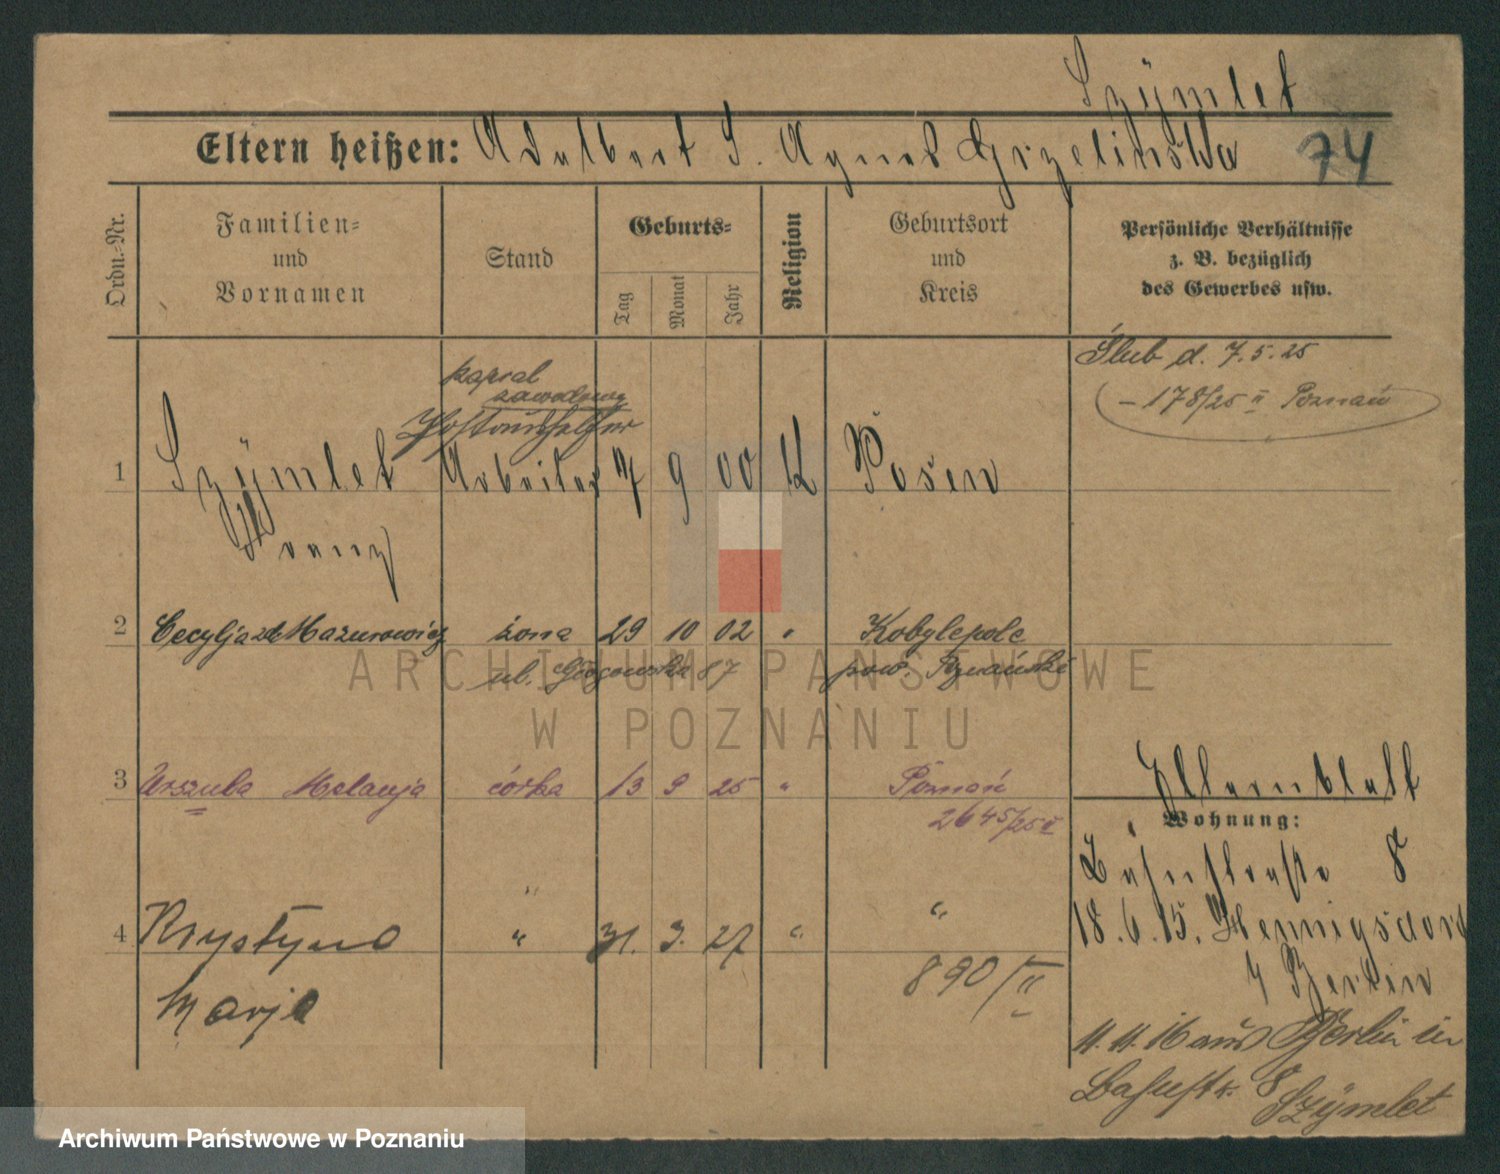 Szymlet
Eltern heißen: Adalbert S. Agnes Grzelinska
74
Ordn.-Nr.
Familien-
und
Vornamen
Stand
Geburts-
Tag
Monat
Jahr
Religion
Geburtsort
und
Kreis
Persönliche Verhältnisse
z. B. bezüglich
des Gewerbes usw.
Ślub d. 7.5.25
– 178/25 II Poznań
kapral
zawodowy
Postaushelfer
1 Szymlet Arbeiter 7 9 00 K Posen
Franz
2 Cecylja zd Mazurowicz żona 29 10 02 " Kobylepole
ul. Głogowska 87 pow. Poznański
3 Urszula Melanja córka 13 9 25 " Poznań
2645/25 II
Elternblatt
Wohnung:
Bahnstraße 8
4 Krystyna " 31. 3. 27 " "
Marja
890/II
18.6.15. Hennigsdorf
Berlin
11.11.16 aus Berlin in
Bahnstr. 8
Szymlet
ARCHIWUM PAŃSTWOWE
W POZNANIU
Archiwum Państwowe w Poznaniu